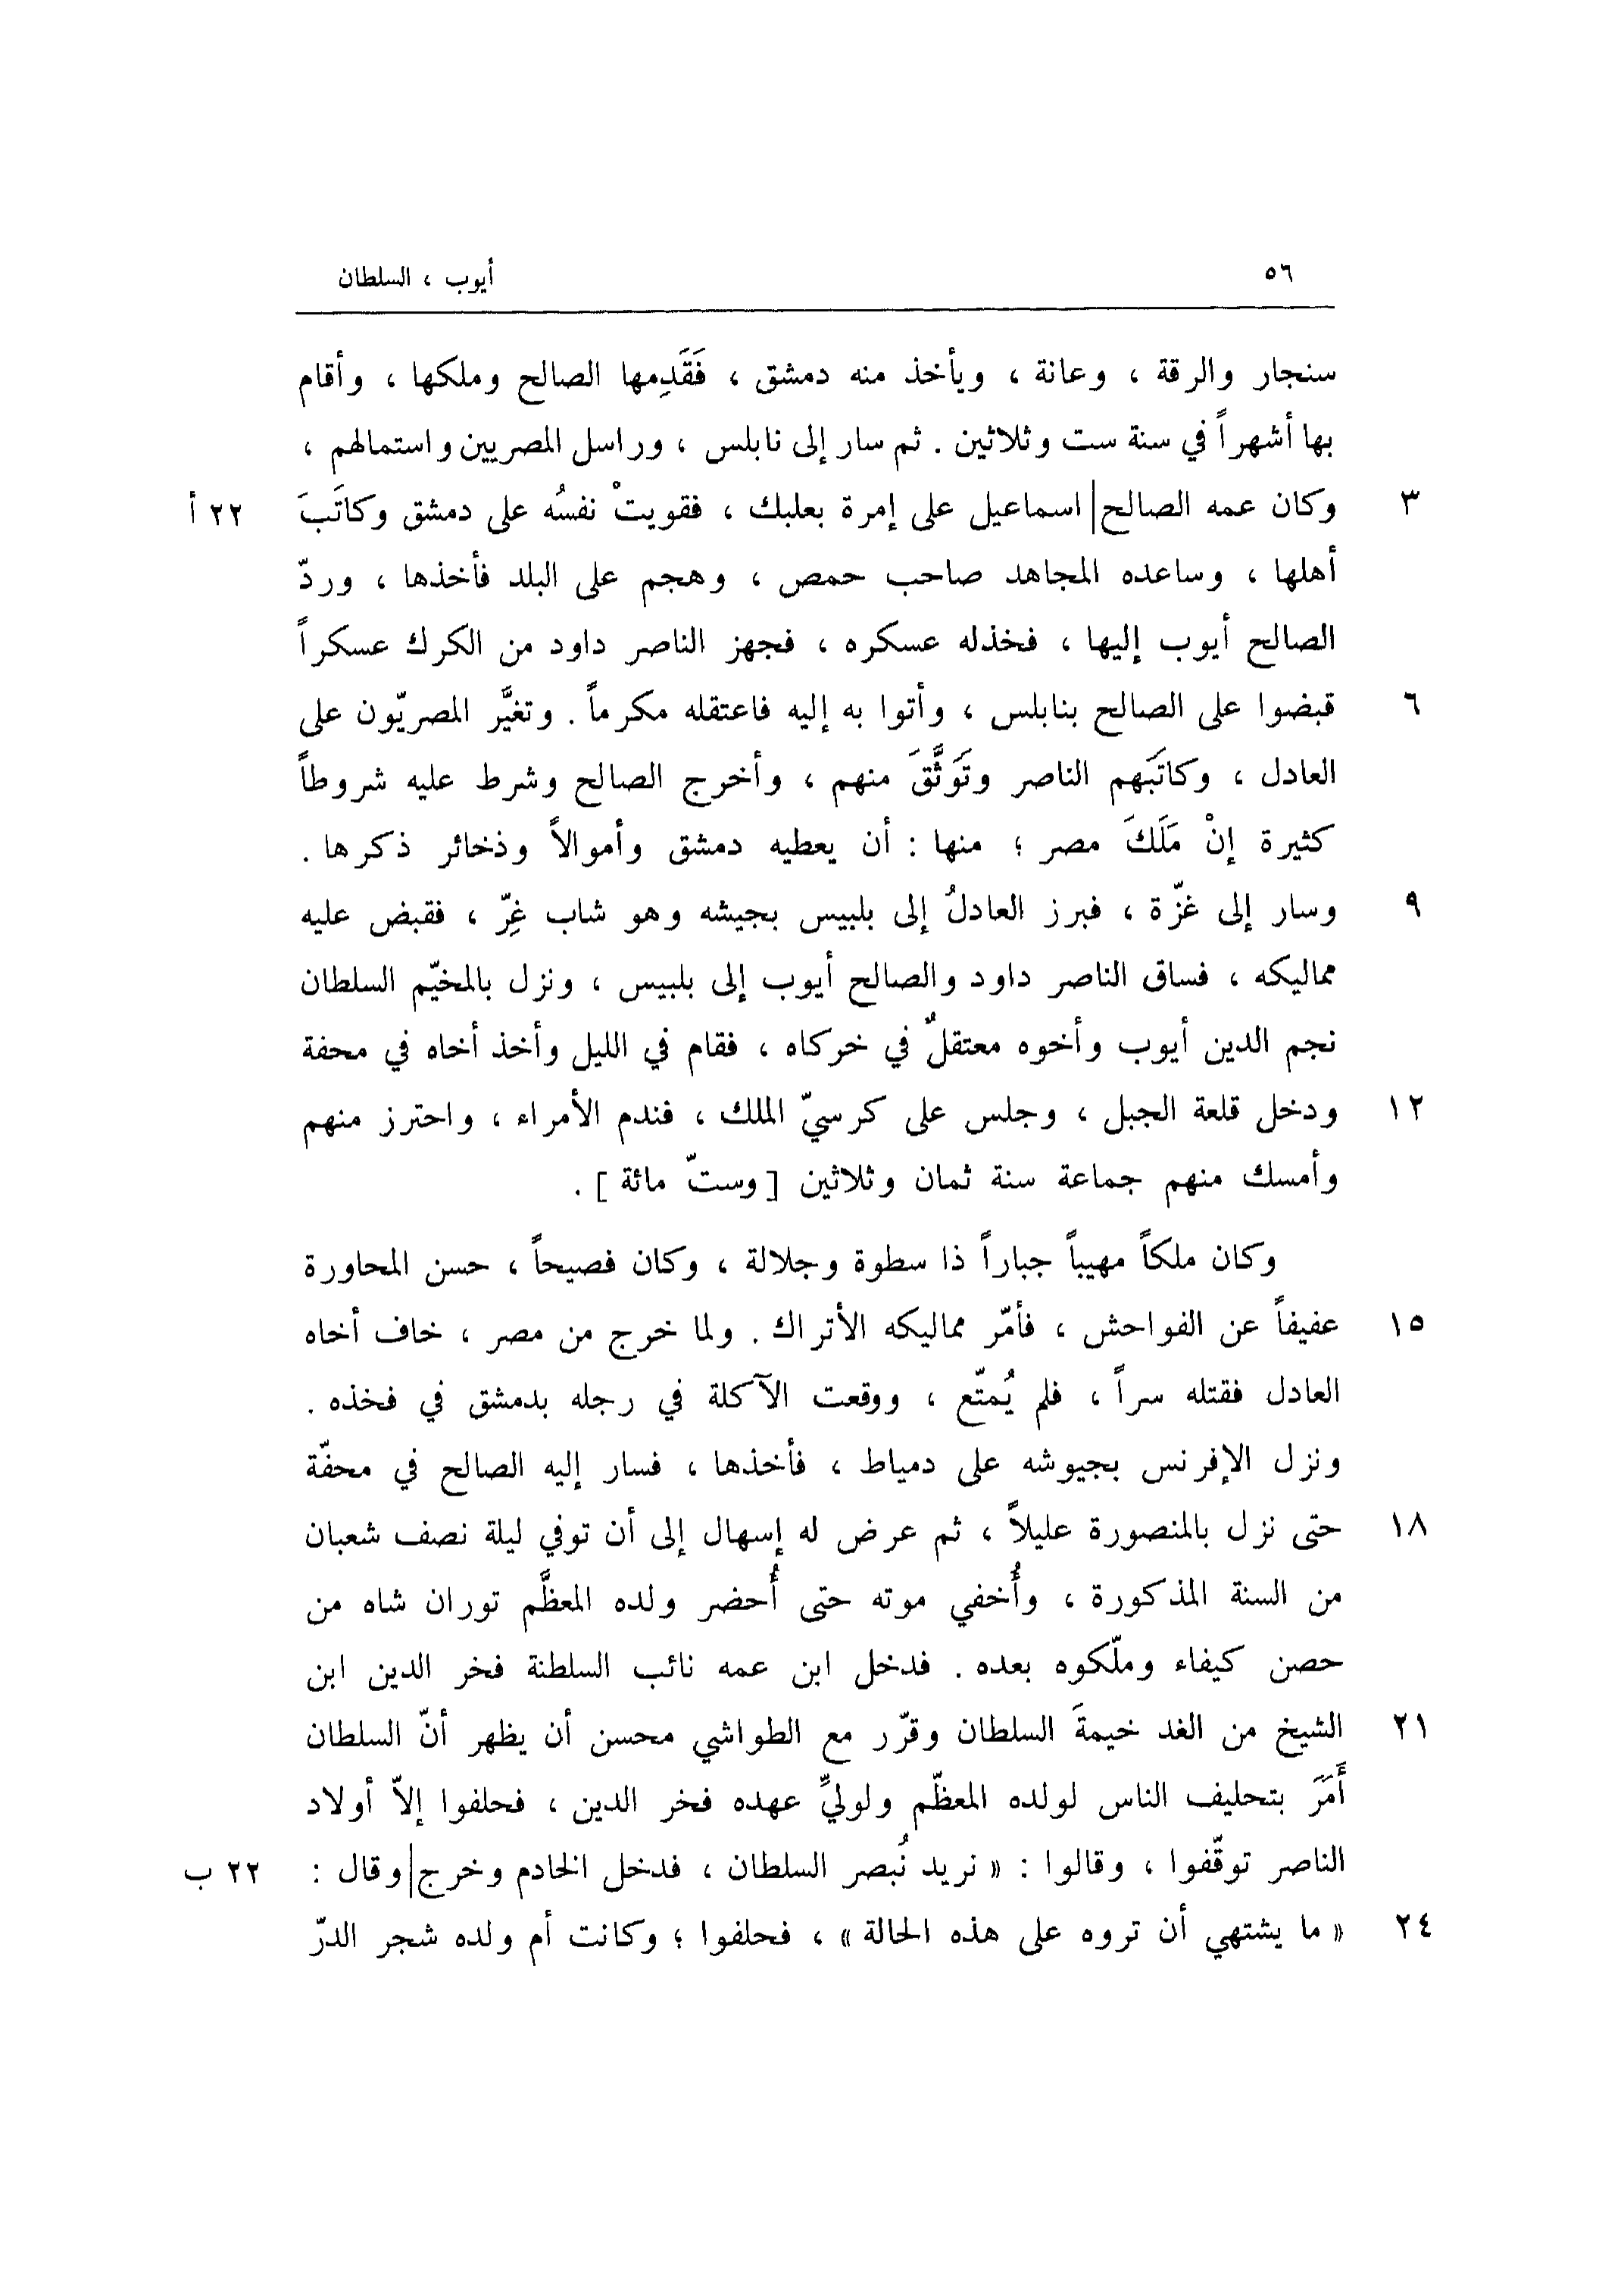 ٥٦ أيوب ، السلطان
سنجار والرقة ، وعانة ، ويأخذ منه دمشق ، فَقَدِمها الصالح وملكها ، وأقام
بها أشهراً في سنة ست وثلاثين . ثم سار إلى نابلس ، وراسل المصريين واستمالهم ،
٣ وكان عمه الصالح| اسماعيل على إمرة بعلبك ، فقويتْ نفسُه على دمشق وكاتَبَ ٢٢ أ
أهلها ، وساعده المجاهد صاحب حمص ، وهجم على البلد فأخذها ، وردّ
الصالح أيوب إليها ، فخذله عسكره ، فجهز الناصر داود من الكرك عسكراً
٦ قبضوا على الصالح بنابلس ، وأتوا به إليه فاعتقله مكرماً . وتغيَّر المصريّون على
العادل ، وكاتَبَهم الناصر وتَوَثَّقَ منهم ، وأخرج الصالح وشرط عليه شروطاً
كثيرة إنْ مَلَكَ مصر ؛ منها : أن يعطيه دمشق وأموالاً وذخائر ذكرها .
٩ وسار إلى غزّة ، فبرز العادلُ إلى بلبيس بجيشه وهو شاب غِرّ ، فقبض عليه
مماليكه ، فساق الناصر داود والصالح أيوب إلى بلبيس ، ونزل بالمخيّم السلطان
نجم الدين أيوب وأخوه معتقلٌ في خركاه ، فقام في الليل وأخذ أخاه في محفة
١٢ ودخل قلعة الجبل ، وجلس على كرسيّ الملك ، فندم الأمراء ، واحترز منهم
وأمسك منهم جماعة سنة ثمان وثلاثين [ وستّ مائة ] .
وكان ملكاً مهيباً جباراً ذا سطوة وجلالة ، وكان فصيحاً ، حسن المحاورة
١٥ عفيفاً عن الفواحش ، فأمّر مماليكه الأتراك . ولما خرج من مصر ، خاف أخاه
العادل فقتله سراً ، فلم يُمتّع ، ووقعت الآكلة في رجله بدمشق في فخذه .
ونزل الإفرنس بجيوشه على دمياط ، فأخذها ، فسار إليه الصالح في محفّة
١٨ حتى نزل بالمنصورة عليلاً ، ثم عرض له إسهال إلى أن توفي ليلة نصف شعبان
من السنة المذكورة ، وأُخفي موته حتى أُحضر ولده المعظَّم توران شاه من
حصن كيفاء وملّكوه بعده . فدخل ابن عمه نائب السلطنة فخر الدين ابن
٢١ الشيخ من الغد خيمةَ السلطان وقرّر مع الطواشي محسن أن يظهر أنّ السلطان
أَمَرَ بتحليف الناس لولده المعظّم ولوليِّ عهده فخر الدين ، فحلفوا إلاّ أولاد
الناصر توقّفوا ، وقالوا : « نريد نُبصر السلطان ، فدخل الخادم وخرج| وقال : ٢٢ ب
٢٤ « ما يشتهي أن تروه على هذه الحالة » ، فحلفوا ؛ وكانت أم ولده شجر الدرّ